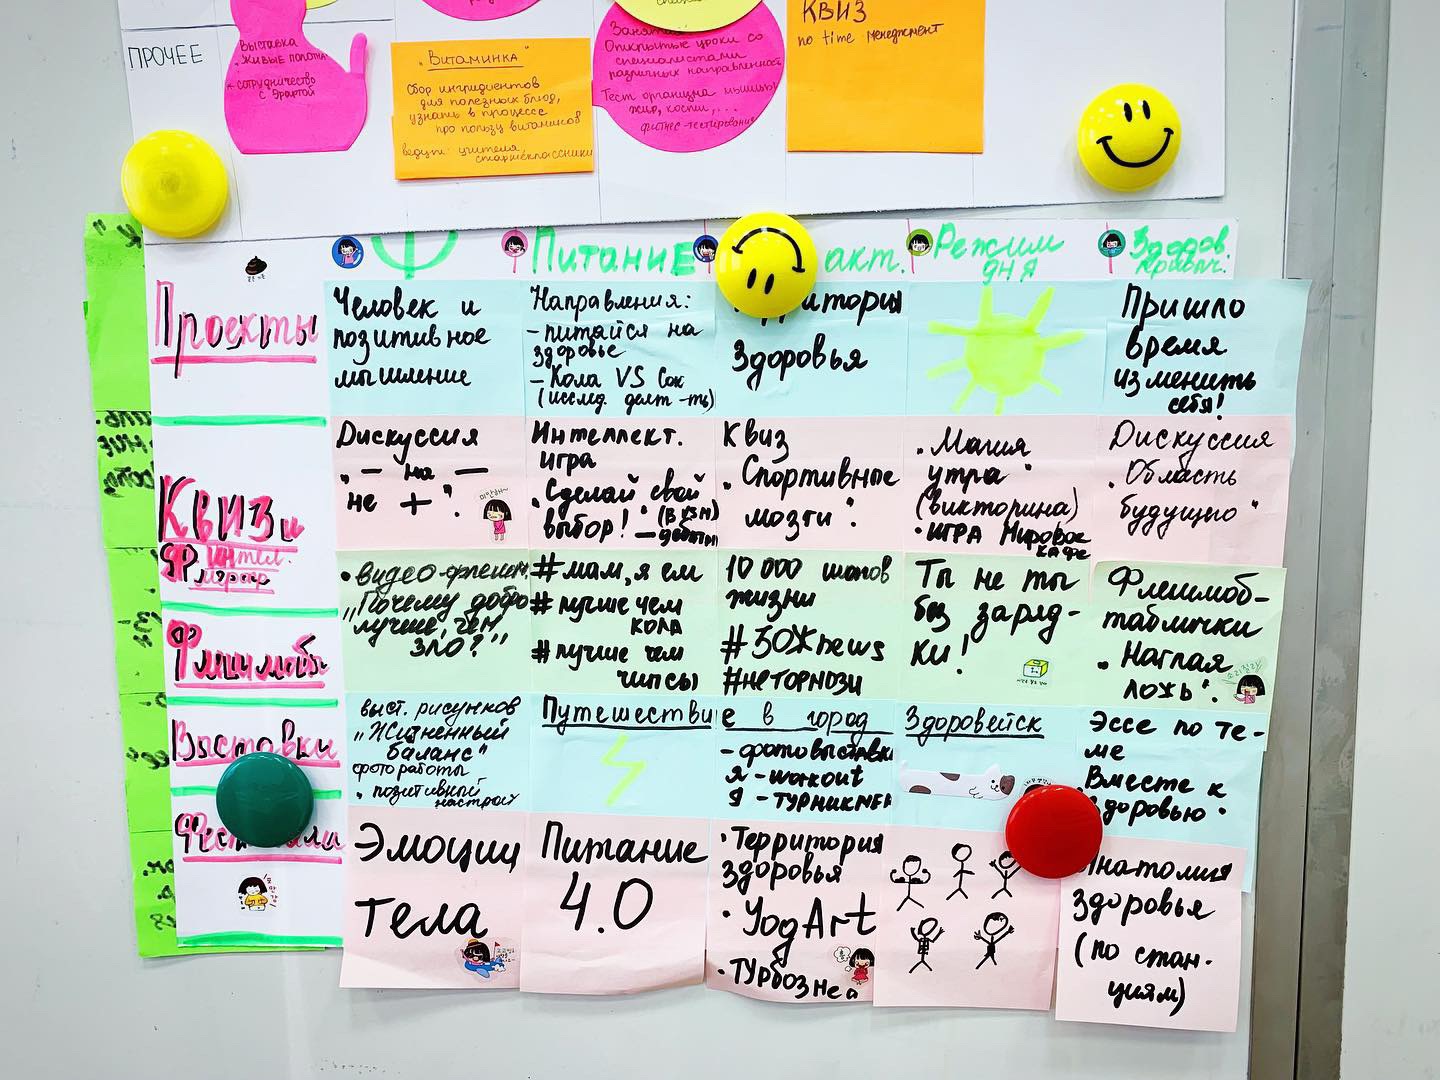 ПРОЧЕЕ
Выставка
"Живые полотна"
* сотрудничество
с Эрартой
"Витаминка"
Сбор ингридиентов
для полезных блюд,
узнать в процессе
про пользу витаминов
ведут: учителя,
старшеклассники
Открытые уроки со
специалистами
различных направленност
Тест организма мышцы
жир, кости,...
фитнес-тестирование
КВИЗ
по time менеджмент
Питание
акт.
Режим
дня
Здоров.
привыч.
Проекты
Человек и
позитивное
мышление
Направления:
- питайся на
здоровье
- Кола VS Сок
(исслед. деят-ть)
Здоровья
Пришло
время
изменить
себя!
Квиз и
интел.
Дискуссия
„ — на —
не + ".
미안해~
Интеллект.
игра
„Сделай свой
выбор!" (ВУЗЫ)
Квиз
„Спортивные
мозги".
„Магия
утра"
(викторина)
• ИГРА Мировое
кафе
Дискуссия
„Область
будущего"
Флешмобы
• видео-флешм.
„Почему добро
лучше, чем
зло?"
#мам, я ем
#лучше чем
КОЛА
#лучше чем
чипсы
10 000 шагов
жизни
#ЗОЖnews
#неторmoзи
Ты не ты
без заряд-
ки!
Флешмоб-
таблички
„Наглая
ложь".
Выставки
выст. рисунков
„Жизненный
баланс"
фотоработы
• позитивный
настрой
Путешестви
е в город
Здоровейск
- фотовыставки
Я - workout
Я - ТУРНИКМЕН
Эссе по те-
ме
Вместе к
здоровью"
Эмоции
тела
Питание
4.0
• Территория
здоровья
• YogArt
Анатомия
здоровья
(по стан-
циям)